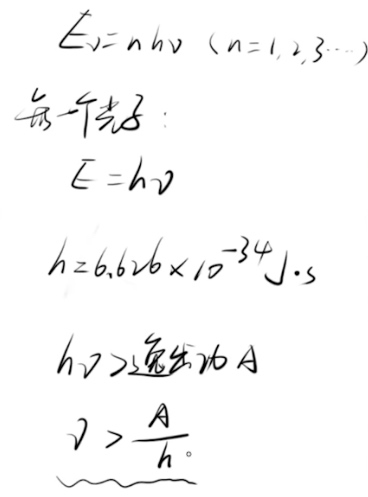 Eν=nhν (n=1,2,3…)
每一个光子:
E=hν
h=6.626×10⁻³⁴J·s
hν>逸出功A
ν>A/h。